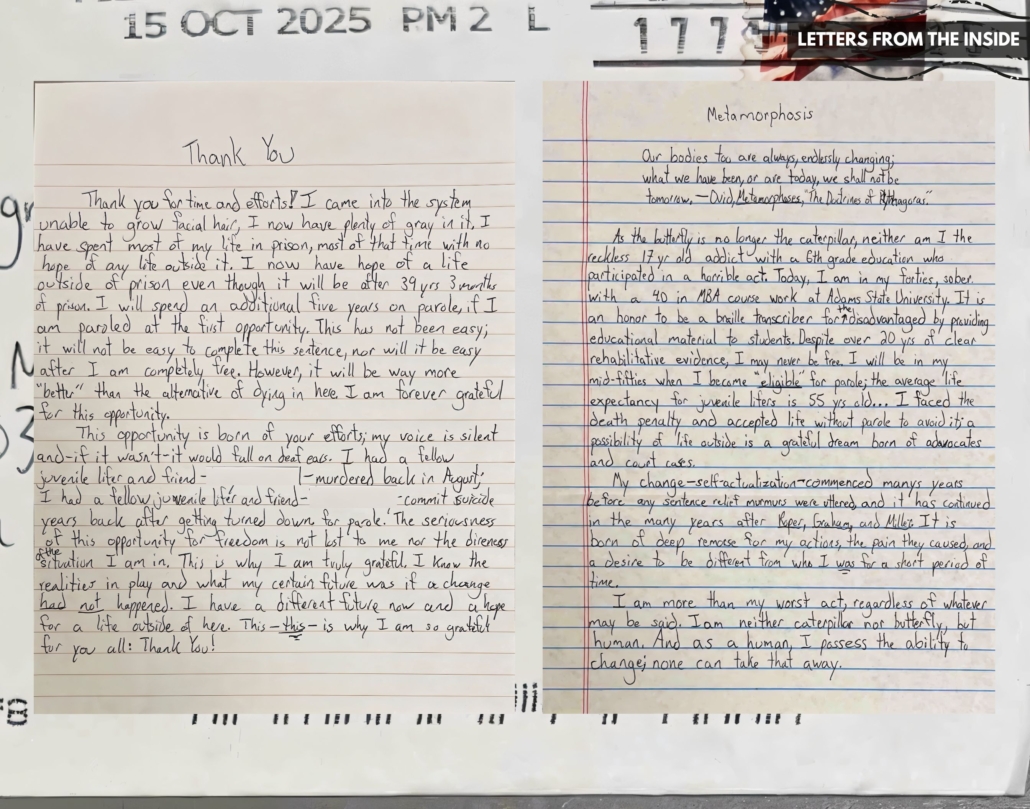 15 OCT 2025 PM 2 L
LETTERS FROM THE INSIDE
Thank You
Thank you for time and efforts! I came into the system
unable to grow facial hair, I now have plenty of gray in it, I
have spent most of my life in prison, most of that time with no
hope of any life outside it. I now have hope of a life
outside of prison even though it will be after 39 yrs 3 months
of prison. I will spend an additional five years on parole, if I
am paroled at the first opportunity. This has not been easy;
it will not be easy to complete this sentence, nor will it be easy
after I am completely free. However, it will be way more
"better" than the alternative of dying in here. I am forever grateful
for this opportunity.
This opportunity is born of your efforts; my voice is silent
and-if it wasn't-it would fall on deaf ears. I had a fellow
juvenile lifer and friend- -murdered back in August;
I had a fellow juvenile lifer and friend- -commit suicide
years back after getting turned down for parole. The seriousness
of this opportunity for freedom is not lost to me nor the direness
of the situation I am in. This is why I am truly grateful. I know the
realities in play and what my certain future was if a change
had not happened. I have a different future now and a hope
for a life outside of here. This-this-is why I am so grateful
for you all: Thank You!
Metamorphosis
Our bodies too are always, endlessly changing;
what we have been, or are today, we shall not be
tomorrow, -Ovid, Metamorphoses, "The Doctrines of Pythagoras."
As the butterfly is no longer the caterpillar, neither am I the
reckless 17 yr old addict with a 6th grade education who
participated in a horrible act. Today, I am in my forties, sober
with a 4.0 in MBA course work at Adams State University. It is
an honor to be a braille transcriber for the disadvantaged by providing
educational material to students. Despite over 20 yrs of clear
rehabilitative evidence, I may never be free. I will be in my
mid-fifties when I become "eligible" for parole; the average life
expectancy for juvenile liters is 55 yrs old... I faced the
death penalty and accepted life without parole to avoid it; a
possibility of life outside is a grateful dream born of advocates
and court cases.
My change-self-actualization-commenced manys years
before any sentence relief murmurs were uttered and it has continued
in the many years after Roper, Graham, and Miller. It is
born of deep remorse for my actions, the pain they caused, and
a desire to be different from who I was for a short period of
time.
I am more than my worst act, regardless of whatever
may be said. I am neither caterpillar nor butterfly, but
human. And as a human, I possess the ability to
change; none can take that away.